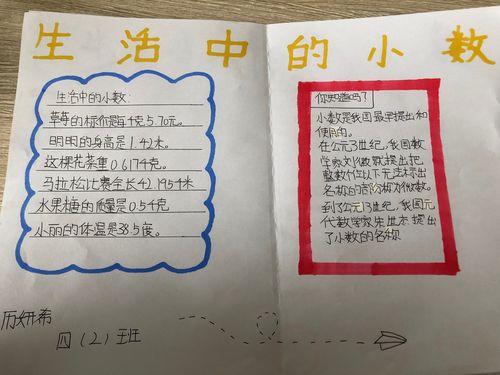 生活中的小数
生活中的小数:
草莓的标价是每4克5.70元。
明明的身高是1.42米。
这棵花菜重0.6174克。
马拉松比赛全长42.1954米
水果糖的质量是0.54克
小丽的体温是38.5度。
你知道吗?
小数是我国最早提出和
使用的。
在公元3世纪,我国数
学家刘徽就提出把
整数个位以下无法标出
名称的部分称为微数。
到了公元13世纪,我国元
代数学家朱世杰提出
了小数的名称
历妍希
四(2)班